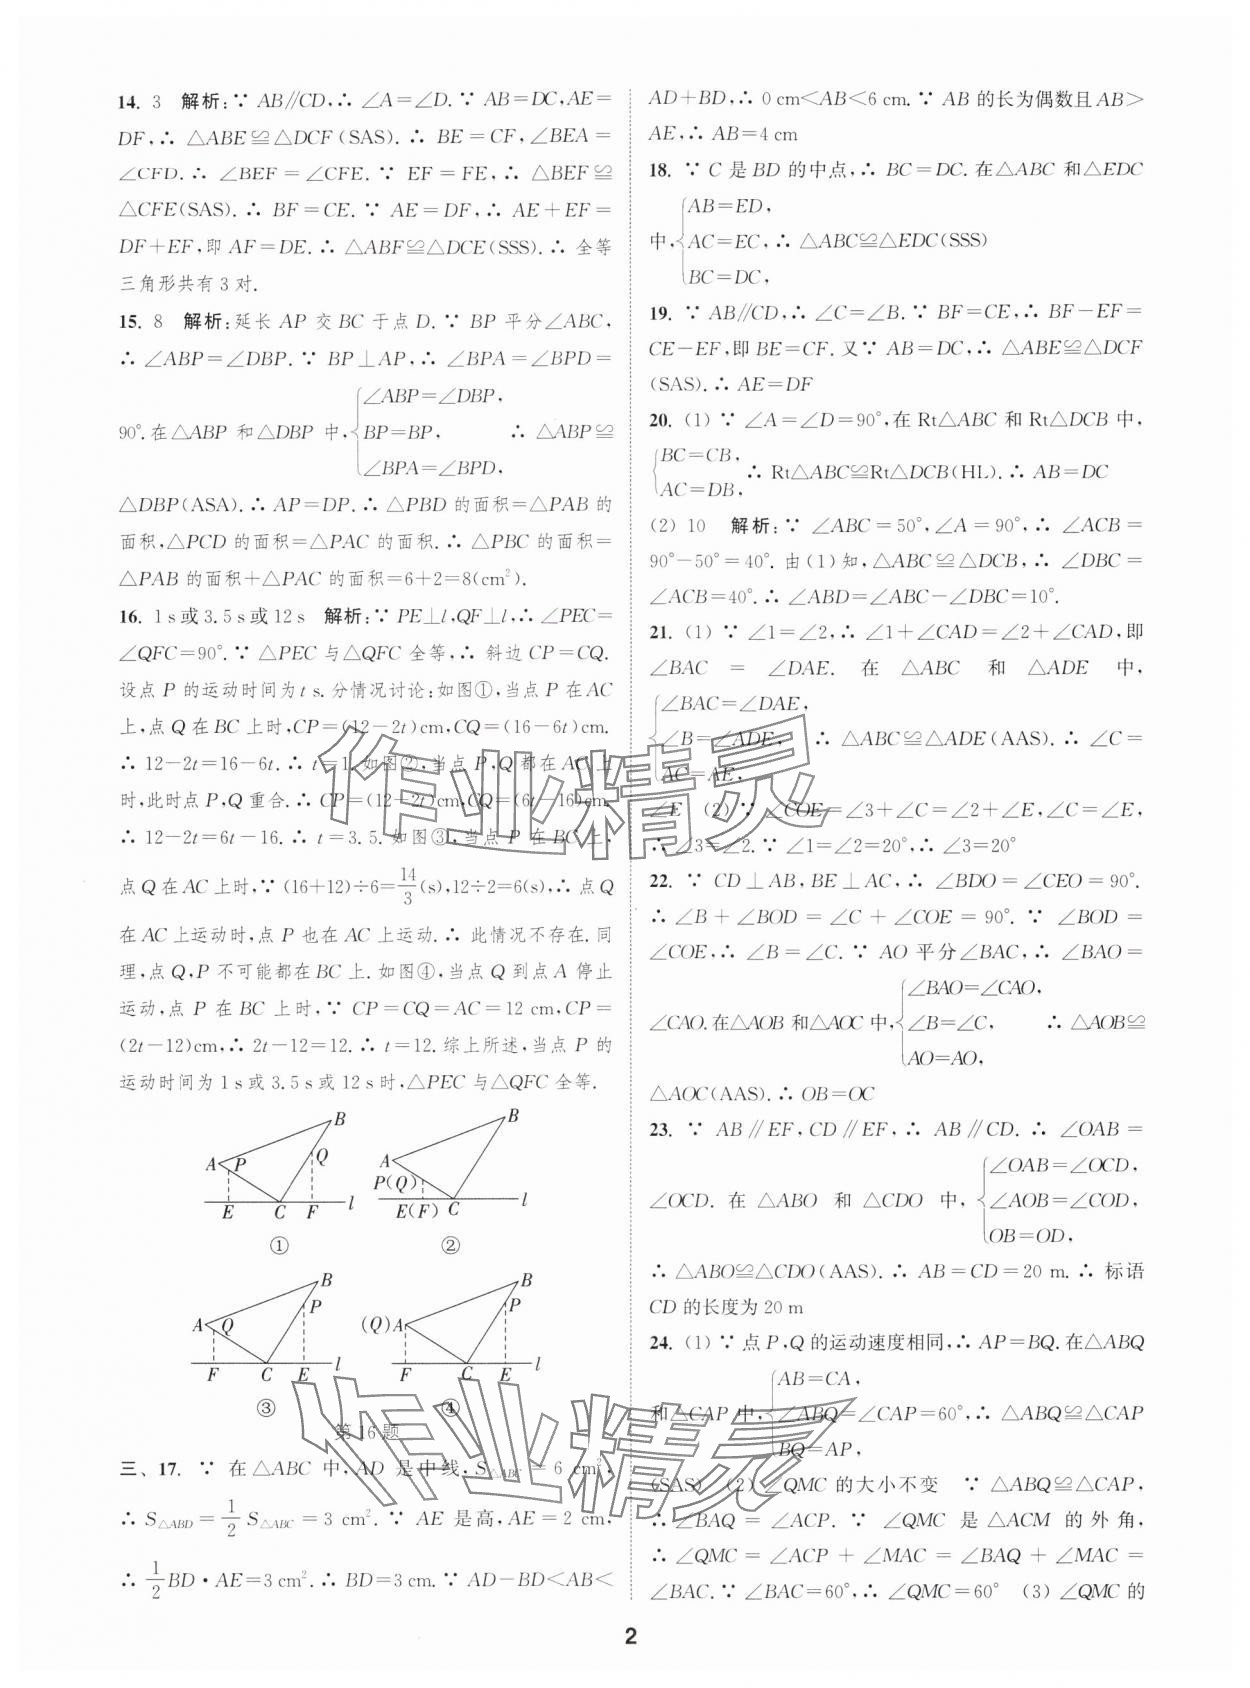 14. 3　解析:∵ AB∥CD,∴ ∠A=∠D.∵ AB=DC,AE=
DF,∴ △ABE≌△DCF(SAS).∴ BE=CF,∠BEA=
∠CFD.∴ ∠BEF=∠CFE.∵ EF=FE,∴ △BEF≌
△CFE(SAS).∴ BF=CE.∵ AE=DF,∴ AE+EF=
DF+EF,即 AF=DE.∴ △ABF≌△DCE(SSS).∴ 全等
三角形共有 3 对.
15. 8　解析:延长 AP 交 BC 于点 D.∵ BP 平分∠ABC,
∴ ∠ABP=∠DBP.∵ BP⊥AP,∴ ∠BPA=∠BPD=
90°.在△ABP 和△DBP 中,{∠ABP=∠DBP, BP=BP, ∠BPA=∠BPD, ∴ △ABP≌
△DBP(ASA).∴ AP=DP.∴ △PBD 的面积=△PAB 的
面积,△PCD 的面积=△PAC 的面积.∴ △PBC 的面积=
△PAB 的面积+△PAC 的面积=6+2=8(cm²).
16. 1 s或3.5 s或12 s　解析:∵ PE⊥l,QF⊥l,∴ ∠PEC=
∠QFC=90°.∵ △PEC 与△QFC 全等,∴ 斜边 CP=CQ.
设点 P 的运动时间为 t s.分情况讨论:如图①,当点 P 在AC
上,点 Q 在 BC 上时,CP=(12-2t)cm,CQ=(16-6t)cm.
∴ 12-2t=16-6t.∴ t=1.如图②,当点 P,Q 都在 AC 上
时,此时点 P,Q 重合.∴ CP=(12-2t)cm,CQ=(6t-16)cm.
∴ 12-2t=6t-16.∴ t=3.5.如图③,当点 P 在 BC 上,
点 Q 在 AC 上时,∵ (16+12)÷6=14/3(s),12÷2=6(s),∴ 点 Q
在 AC 上运动时,点 P 也在 AC 上运动.∴ 此情况不存在.同
理,点 Q,P 不可能都在 BC 上.如图④,当点 Q 到点 A 停止
运动,点 P 在 BC 上时,∵ CP=CQ=AC=12 cm,CP=
(2t-12)cm,∴ 2t-12=12.∴ t=12.综上所述,当点 P 的
运动时间为 1 s 或 3.5 s 或 12 s 时,△PEC 与△QFC 全等.
A P B Q E C F l
①
A B P(Q) E(F) C l
②
A Q B P F C E l
③
(Q)A B P F C E l
④
第 16 题
三、17. ∵ 在△ABC 中,AD 是中线,S△ABC=6 cm²,
∴ S△ABD=1/2 S△ABC=3 cm².∵ AE 是高,AE=2 cm,
∴ 1/2 BD·AE=3 cm².∴ BD=3 cm.∵ AD-BD<AB<
AD+BD,∴ 0 cm<AB<6 cm.∵ AB 的长为偶数且AB>
AE,∴ AB=4 cm
18. ∵ C 是 BD 的中点,∴ BC=DC.在△ABC 和△EDC
中,{AB=ED, AC=EC, BC=DC, ∴ △ABC≌△EDC(SSS)
19. ∵ AB∥CD,∴ ∠C=∠B.∵ BF=CE,∴ BF-EF=
CE-EF,即 BE=CF.又∵ AB=DC,∴ △ABE≌△DCF
(SAS).∴ AE=DF
20. (1) ∵ ∠A=∠D=90°,在 Rt△ABC 和 Rt△DCB 中,
{BC=CB, AC=DB, ∴ Rt△ABC≌Rt△DCB(HL).∴ AB=DC
(2) 10　解析:∵ ∠ABC=50°,∠A=90°,∴ ∠ACB=
90°-50°=40°.由(1)知,△ABC≌△DCB,∴ ∠DBC=
∠ACB=40°.∴ ∠ABD=∠ABC-∠DBC=10°.
21. (1) ∵ ∠1=∠2,∴ ∠1+∠CAD=∠2+∠CAD,即
∠BAC = ∠DAE. 在 △ABC 和 △ADE 中,
{∠BAC=∠DAE, ∠B=∠ADE, AC=AE, ∴ △ABC≌△ADE(AAS).∴ ∠C=
∠E　(2) ∵ ∠COE=∠3+∠C=∠2+∠E,∠C=∠E,
∴ ∠3=∠2.∵ ∠1=∠2=20°,∴ ∠3=20°
22. ∵ CD⊥AB,BE⊥AC,∴ ∠BDO=∠CEO=90°.
∴ ∠B+∠BOD=∠C+∠COE=90°.∵ ∠BOD=
∠COE,∴ ∠B=∠C.∵ AO 平分∠BAC,∴ ∠BAO=
∠CAO.在△AOB 和△AOC 中,{∠BAO=∠CAO, ∠B=∠C, AO=AO, ∴ △AOB≌
△AOC(AAS).∴ OB=OC
23. ∵ AB∥EF,CD∥EF,∴ AB∥CD.∴ ∠OAB=
∠OCD. 在 △ABO 和 △CDO 中,{∠OAB=∠OCD, ∠AOB=∠COD, OB=OD,
∴ △ABO≌△CDO(AAS).∴ AB=CD=20 m.∴ 标语
CD 的长度为 20 m
24. (1) ∵ 点 P,Q 的运动速度相同,∴ AP=BQ.在△ABQ
和△CAP 中,{AB=CA, ∠ABQ=∠CAP=60°, BQ=AP, ∴ △ABQ≌△CAP
(SAS)　(2) ∠QMC 的大小不变　∵ △ABQ≌△CAP,
∴ ∠BAQ=∠ACP.∵ ∠QMC 是 △ACM 的外角,
∴ ∠QMC=∠ACP+∠MAC=∠BAQ+∠MAC=
∠BAC.∵ ∠BAC=60°,∴ ∠QMC=60°　(3) ∠QMC 的
作业精灵
作业精灵
2